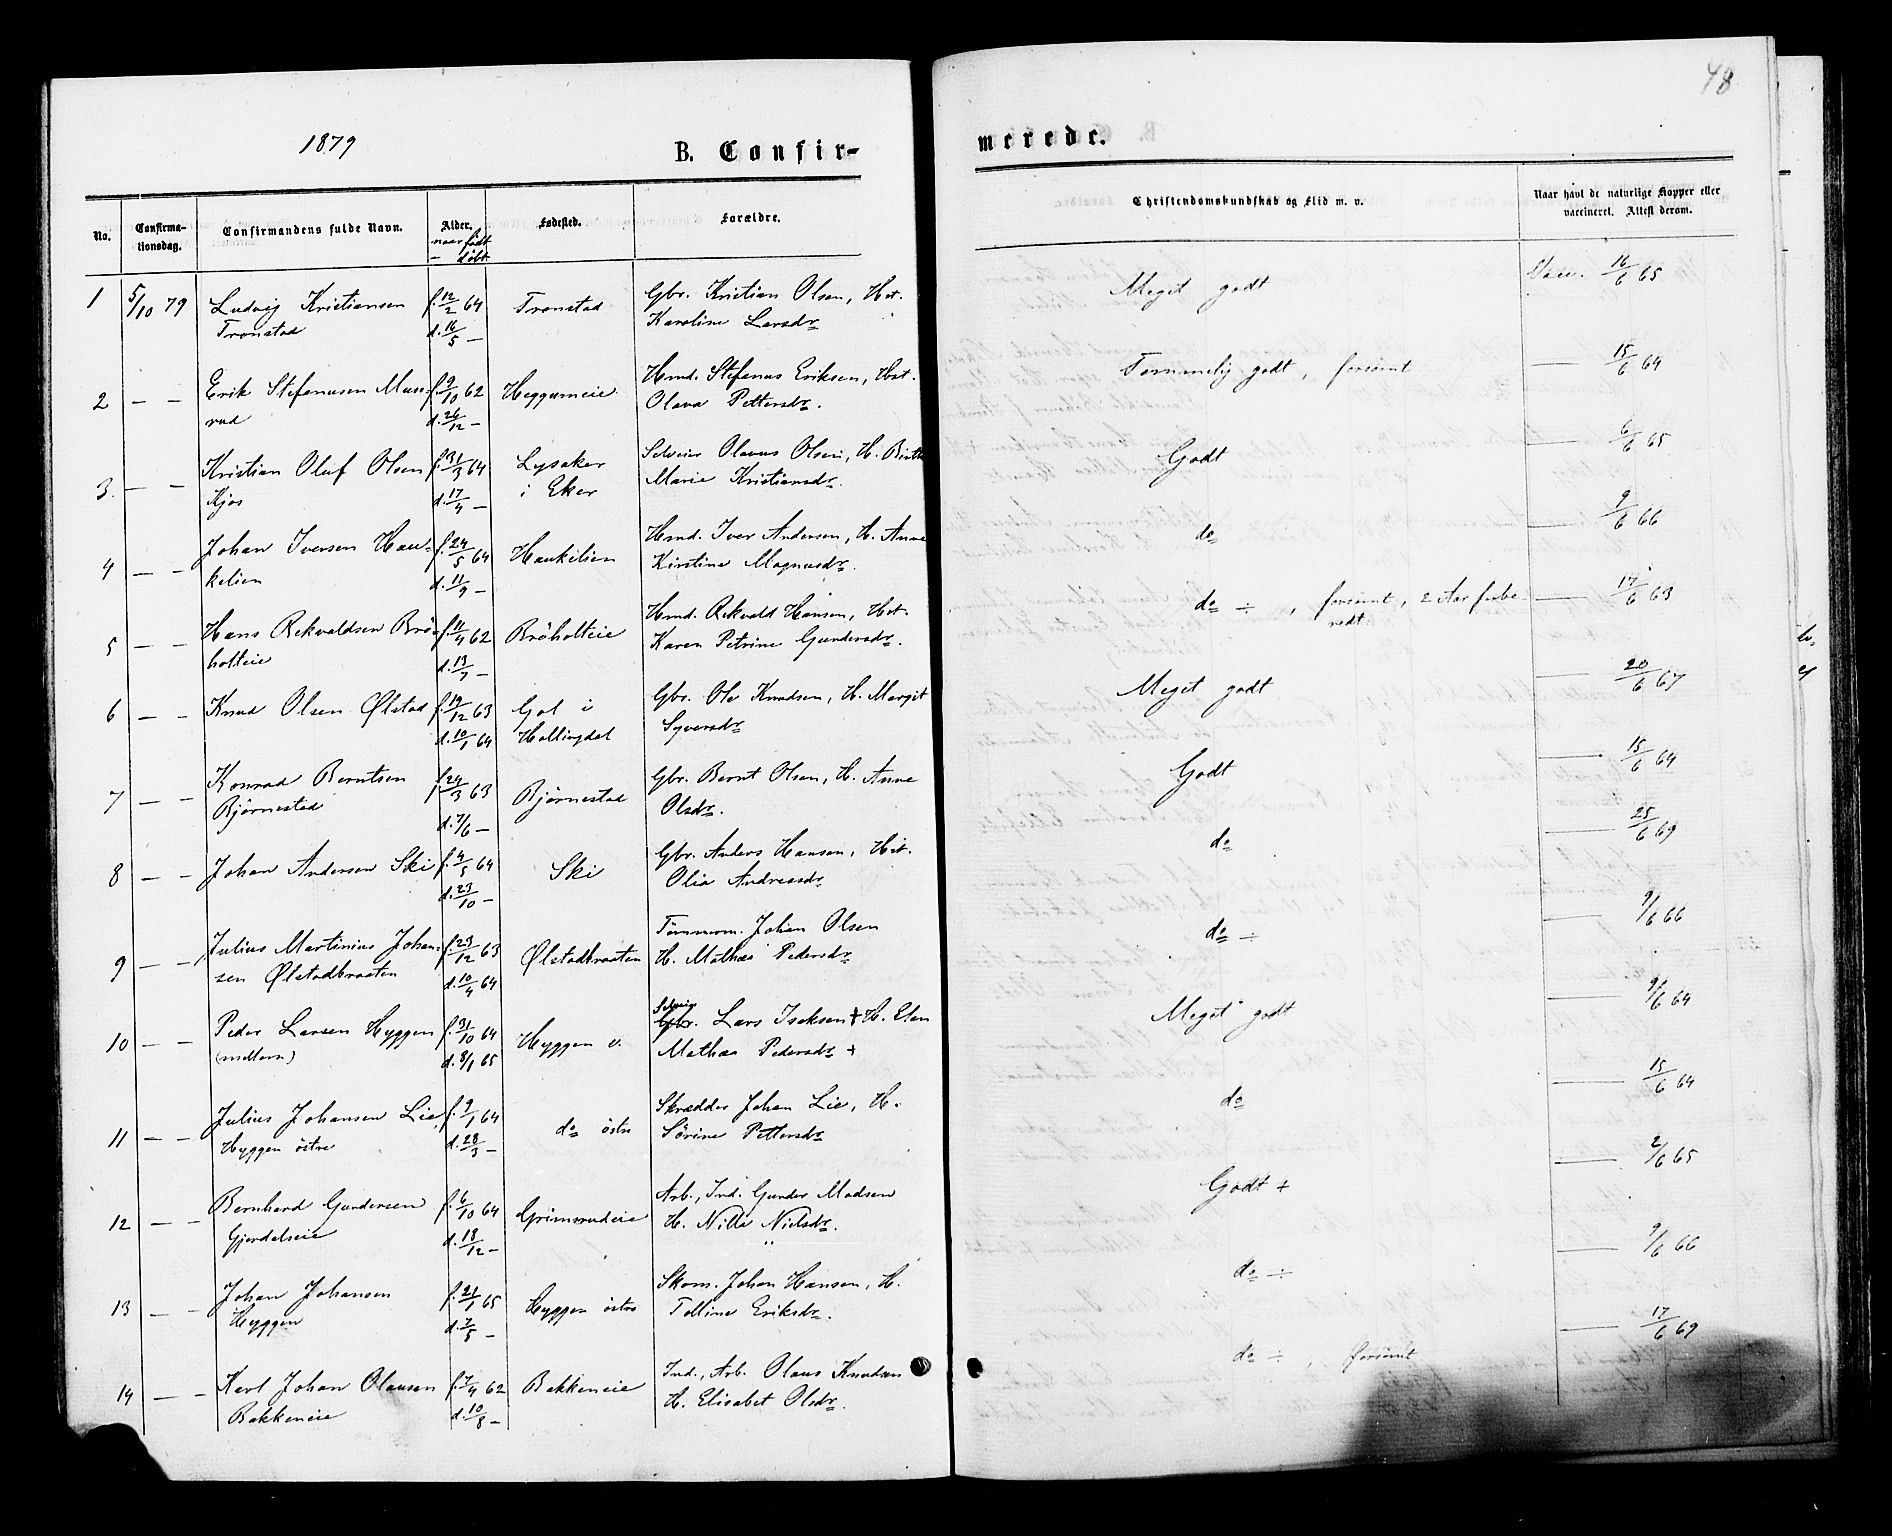 48
1879
B. Confir-
merede.
No.
Confirma-
tionsdag.
Confirmandens fulde Navn.
Alder.
naar født
— døbt
Fødested.
Forældre.
Christendomskundskab og Flid m. v.
Naar havt de naturlige Kopper eller
vaccineret. Attest derom.
1 5/10 79 Ludvig Kristiansen f. 12/2 64 Tronstad Gbr. Kristian Olsen, Hst. Meget godt Vacc. 16/6 65
Tronstad d. 16/5 — Karoline Larsdr
2 — — Erik Stefanusen Mus- f. 9/10 62 Heggumeie Hmd. Stefanus Eriksen, Hst. Temmelig godt, forsömt — 15/6 64
rud d. 26/12 — Olava Pettersdr.
3. — — Kristian Oluf Olsen f. 31/3 64 Lysaker Selveier Olavus Olsen, H. Birthe Godt — 6/6 65
Kjos d. 17/4 — i Eker Marie Kristiansdr.
4 — — Johan Iversen Hau- f. 24/5 64 Haukelien Hmd. Iver Andersen, H. Anne do — 9/6 66
kelien d. 11/9 — Kirstine Magnusdr.
5 — — Hans Rekvaldsen Brö- f. 11/4 62 Bröholteie Hmd. Rekvald Hansen, Hst. do ÷, forsömt, 2 Aar forbe — 17/6 63
holteie d. 13/7 — Karen Petrine Gundersdr. redt
6 — — Knud Olsen Ølstad f. 19/12 63 Gol i Gbr. Ole Knudsen, H. Margit Meget godt — 20/6 67
d. 10/1 64 Hallingdal Syversdr
7 — — Konrad Berntsen f. 24/3 63 Bjørnestad Gbr. Bernt Olsen, H. Anne Godt — 15/6 64
Bjørnestad d. 7/6 — Olsdr.
8 — — Johan Andersen Ski f. 4/5 64 Ski Gbr. Anders Hansen, Hst. do — 25/6 69
d. 23/10 — Olia Andreasdr
9 — — Julius Martinius Johan- f. 23/12 63 Ølstadbraaten Tømmerm. Johan Olsen do ÷ — 9/6 66
sen Ølstadbraaten d. 10/4 64 H. Mathea Pedersdr
10 — — Peder Larsen Hyggen f. 31/10 64 Hyggen v. Selveier Gbr. Lars Isaksen + H. Elen Meget godt — 9/6 64
(mellem) d. 8/1 65 Mathea Pedersdr +
11 — — Julius Johansen Lie, f. 9/1 64 do östre Skrædder Johan Lie, H. do — 15/6 64
Hyggen östre d. 28/3 — Sörine Pettersdr
12 — — Bernhard Gundersen f. 6/10 64 Grimsrudeie Arb., Ind. Gunder Madsen Godt + — 2/6 65
Gjerdalseie d. 18/12 — H. Nille Nielsdr.
13 — — Johan Johansen f. 21/1 65 Hyggen östre Skom. Johan Hansen, H. do ÷ — 9/6 66
Hyggen d. 7/5 — Tolline Eriksdr.
14 — — Karl Johan Olausen f. 7/4 62 Bakkeneie Ind., Arb. Olaus Knudsen do ÷, forsömt — 17/6 69
Bakkeneie d. 10/8 — H. Elisabet Olsdr.